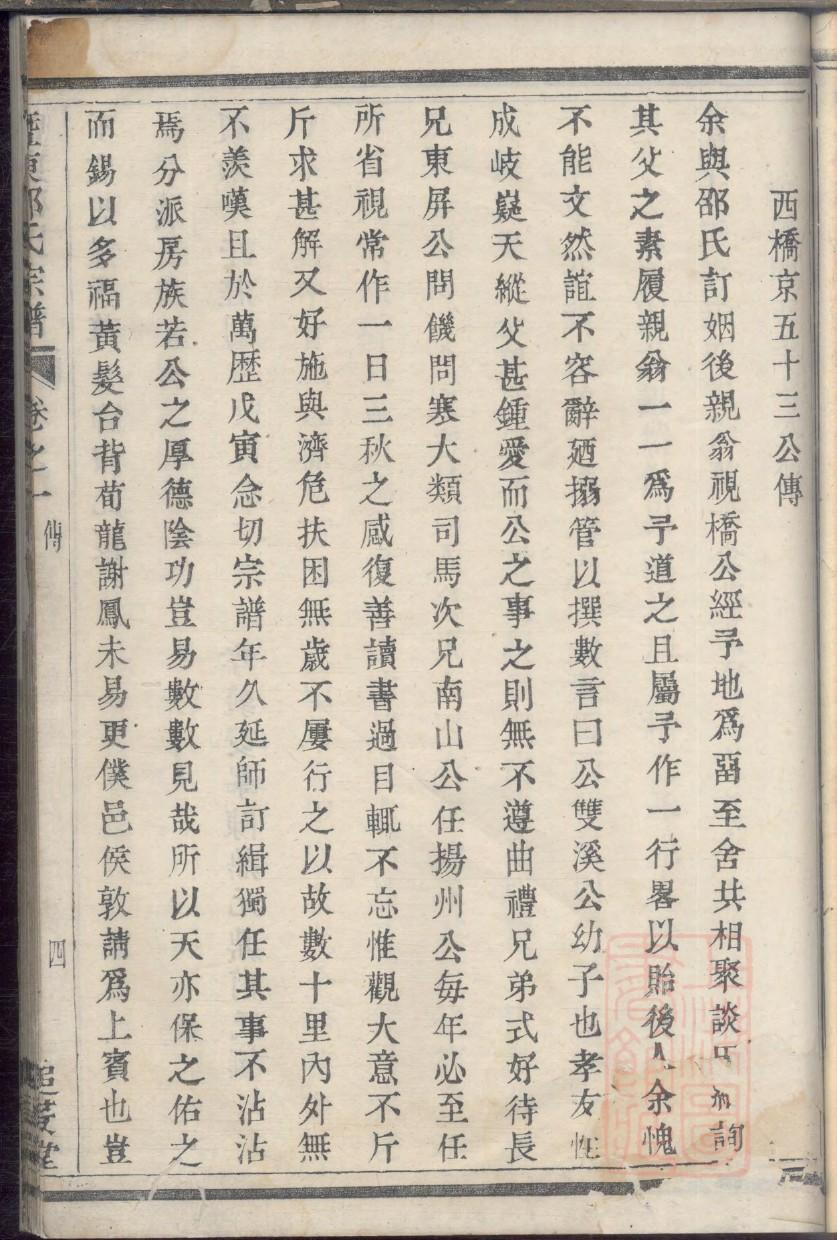 西橋京五十三公傳
余與邵氏訂姻後親翁視橋公經予地爲畱至舍共相聚談 詢
其父之素履親翁一一爲予道之且屬予作一行畧以貽後人余愧
不能文然誼不容辭廼搦管以撰數言曰公雙溪公幼子也孝友性
成岐嶷天縱父甚鍾愛而公之事之則無不遵曲禮兄弟式好待長
兄東屏公問饑問寒大類司馬次兄南山公任揚州公每年必至任
所省視常作一日三秋之感復善讀書過目輒不忘惟觀大意不斤
斤求甚解又好施與濟危扶困無歲不屢行之以故數十里內外無
不羨嘆且於萬歷戊寅念切宗譜年久延師訂緝獨任其事不沾沾
焉分派房族若公之厚德陰功豈易數數見哉所以天亦保之佑之
而錫以多福黃髮台背荀龍謝鳳未易更僕邑侯敦請爲上賓也豈
東邵氏宗譜
卷之一
傳
四